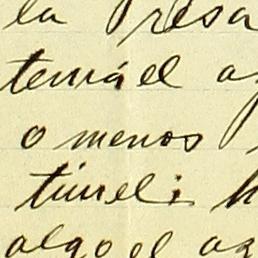 la Presa
tenía el a
o menos
túnel; h
algo el ag